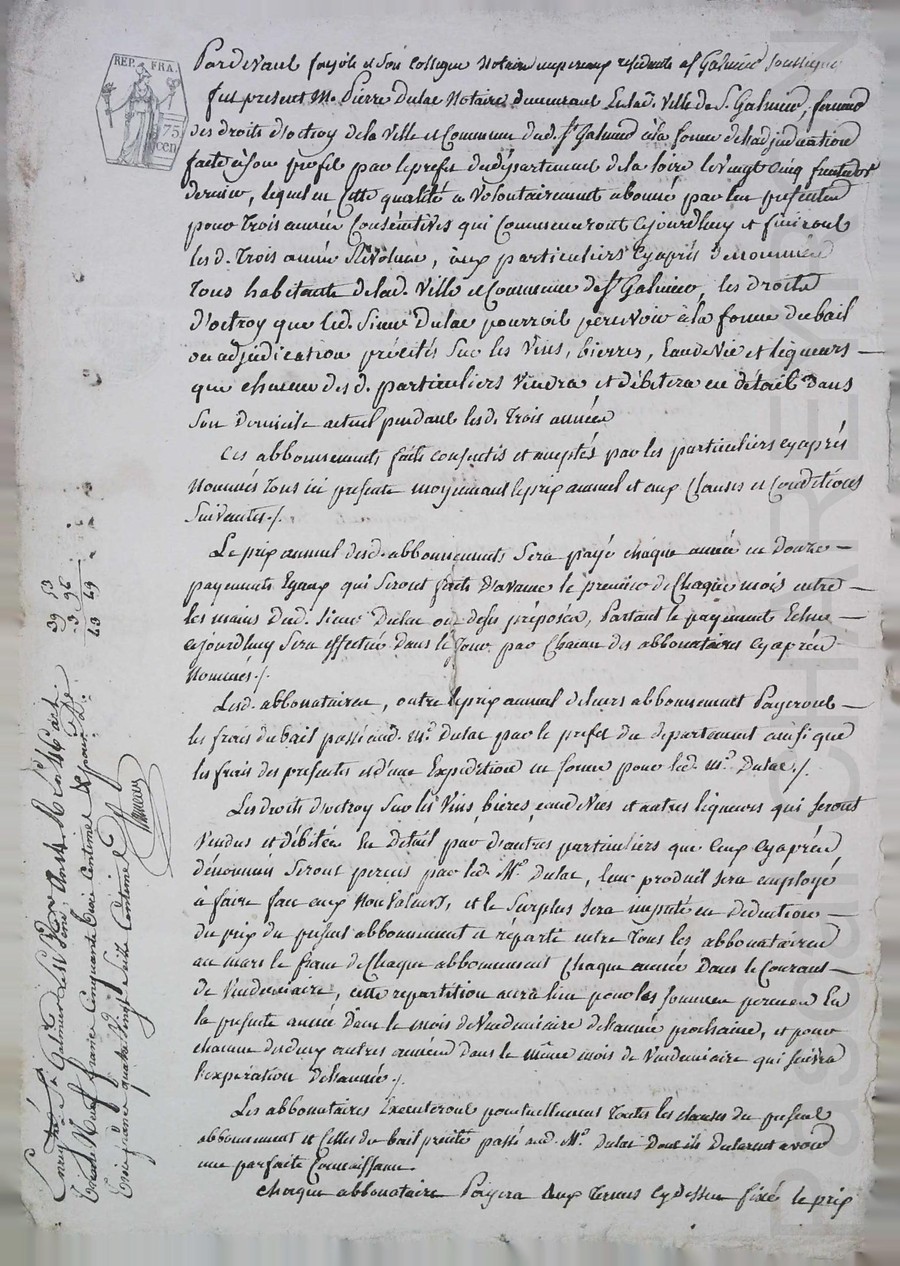 REP. FRA.
75
cen
Pardevant et son collegue Notaires imperiaux residents a St Galmier soussignés
fut present Me. Pierre Dulac Notaire demeurant en lad. ville de St. Galmier, fermier
des droits d'octroy de la ville et Commune dud. St Galmier à la forme de l'adjudication
faite à son profit par le prefet du département de la loire le vingt cinq fructidor
dernier, lequel en cette qualité a volontairement abonné par les presentes
pour trois années Consécutives qui Commenceront cejourdhuy et finiront
lesd. trois années Révolues, aux particuliers cy après dénommés
tous habitants de lad. ville et Commune de St Galmier, les droits
d'octroy que led. Sieur Dulac pourroit percevoir à la forme du bail
ou adjudication précités sur les vins, bierres, Eaudevie et liqueurs —
que chacun desd. particuliers vendra et débitera en détail dans
son domicile actuel pendant lesd. trois années
Ces abbonnements faits consentis et acceptés par les particuliers cy après
nommés tous ici presents moyennant le prix annuel et aux Clauses et Conditions
suivantes./.
Le prix annuel desd. abbonnements sera payé chaque année en Douze —
payements Egaux qui seront faits d'avance le premier de Chaque mois entre —
les mains dud. Sieur Dulac ou de ses préposés, Partant le payement Echu —
cejourdhuy sera effectué dans le jour par Chacun des abbonataires cy après
nommés./.
Lesd. abbonataires, outre le prix annuel de leurs abbonnements Payeront —
les frais du bail passé aud. me. Dulac par le prefet du departement ainsi que
les frais des presentes et d'une Expédition en forme pour led. me. Dulac./.
Les Droits d'octroy sur les vins, bières, eaudevies et autres liqueurs qui seront
vendus et débités En Détail par d'autres particuliers que ceux cy après
dénommés seront percus par led. Me. Dulac, leur produit sera employé
à faire face aux Non Valeurs, et le surplus sera imputé en Deduction —
du prix du present abbonnement et réparti entre tous les abbonataires
au marc le franc de Chaque abbonnement Chaque année Dans le Courant —
de Vendemiaire, cette repartition aura lieu pour les sommes percues En
la presente année Dans le mois de Vendemiaire de l'année prochaine, et pour
chacune des deux autres années dans le même mois de Vendemiaire qui suivra
l'expiration de l'année./.
Les abbonataires Executeront ponctuellement toutes les clauses du present
abbonnement et celles du bail precité passé aud. Me. Dulac Dont ils Declarent avoir
une parfaite Connoissance
Chaque abbonataire Payera aux termes cy dessus fixés le prix
39 53
3 96
43 49
Enregistré à St Galmier
neuf francs Cinquante trois Centimes
quatre vingt seize Centimes
Pascal CHAREYRON